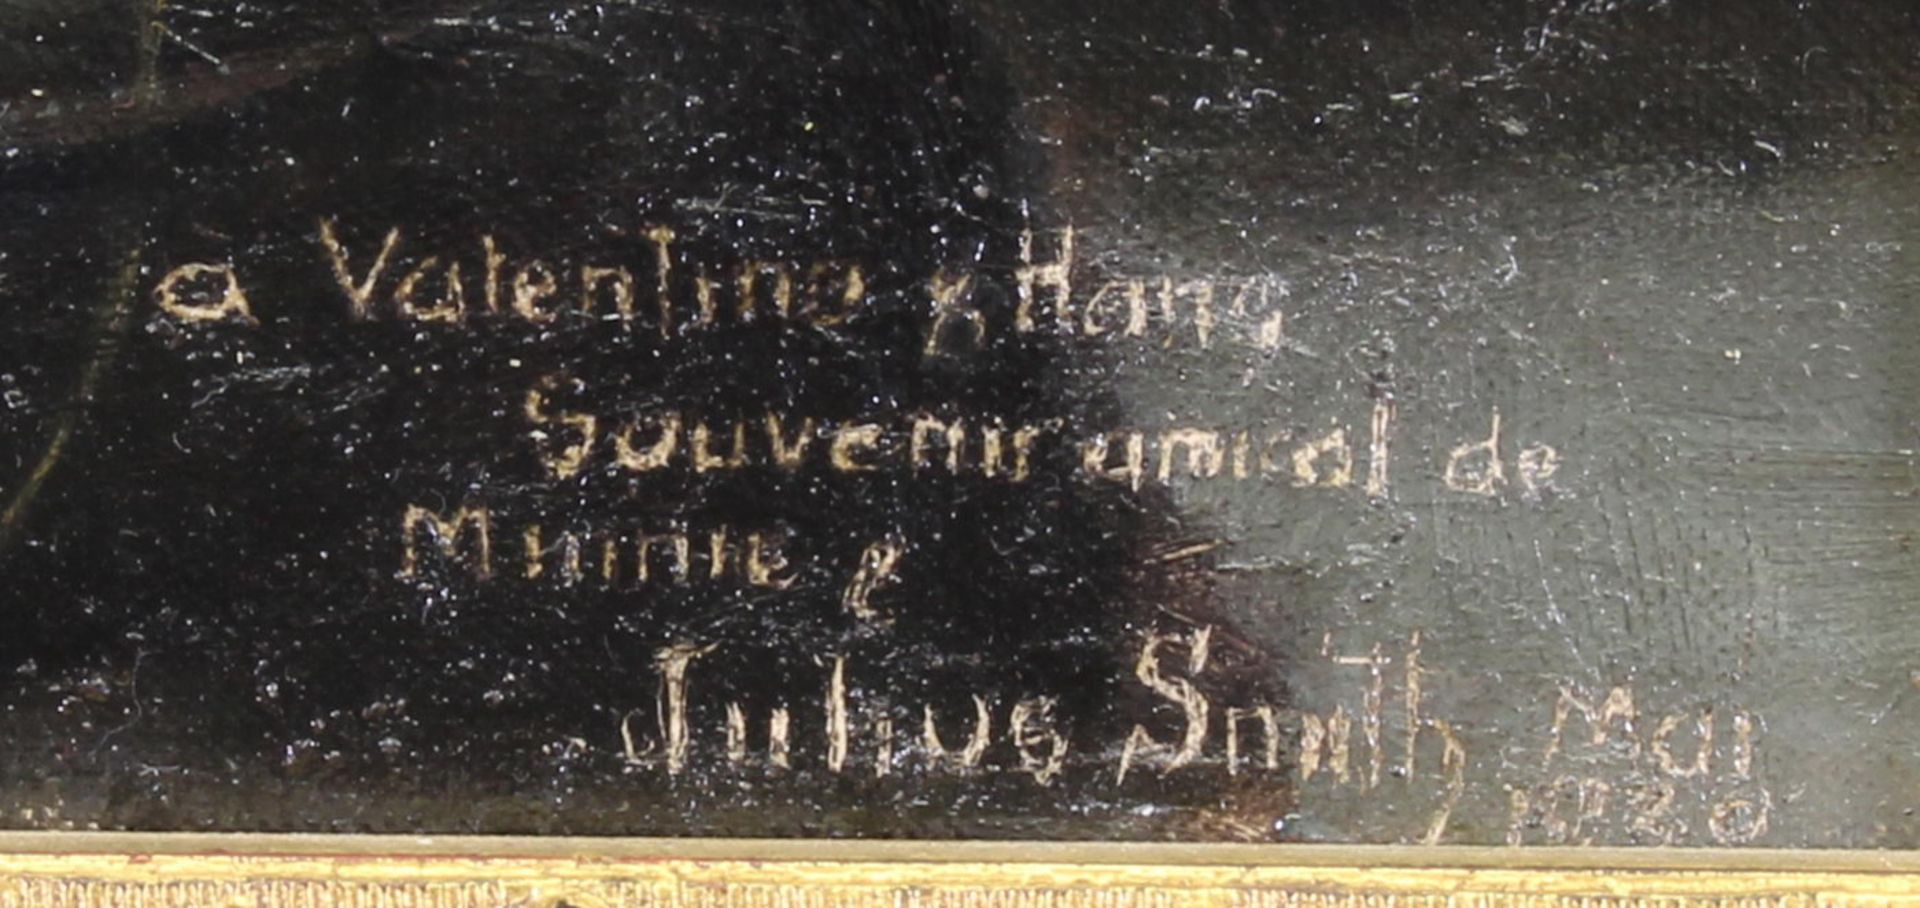 a Valentino y Hans
Souvenir amical de
Minnie &
Julius Smith Mai